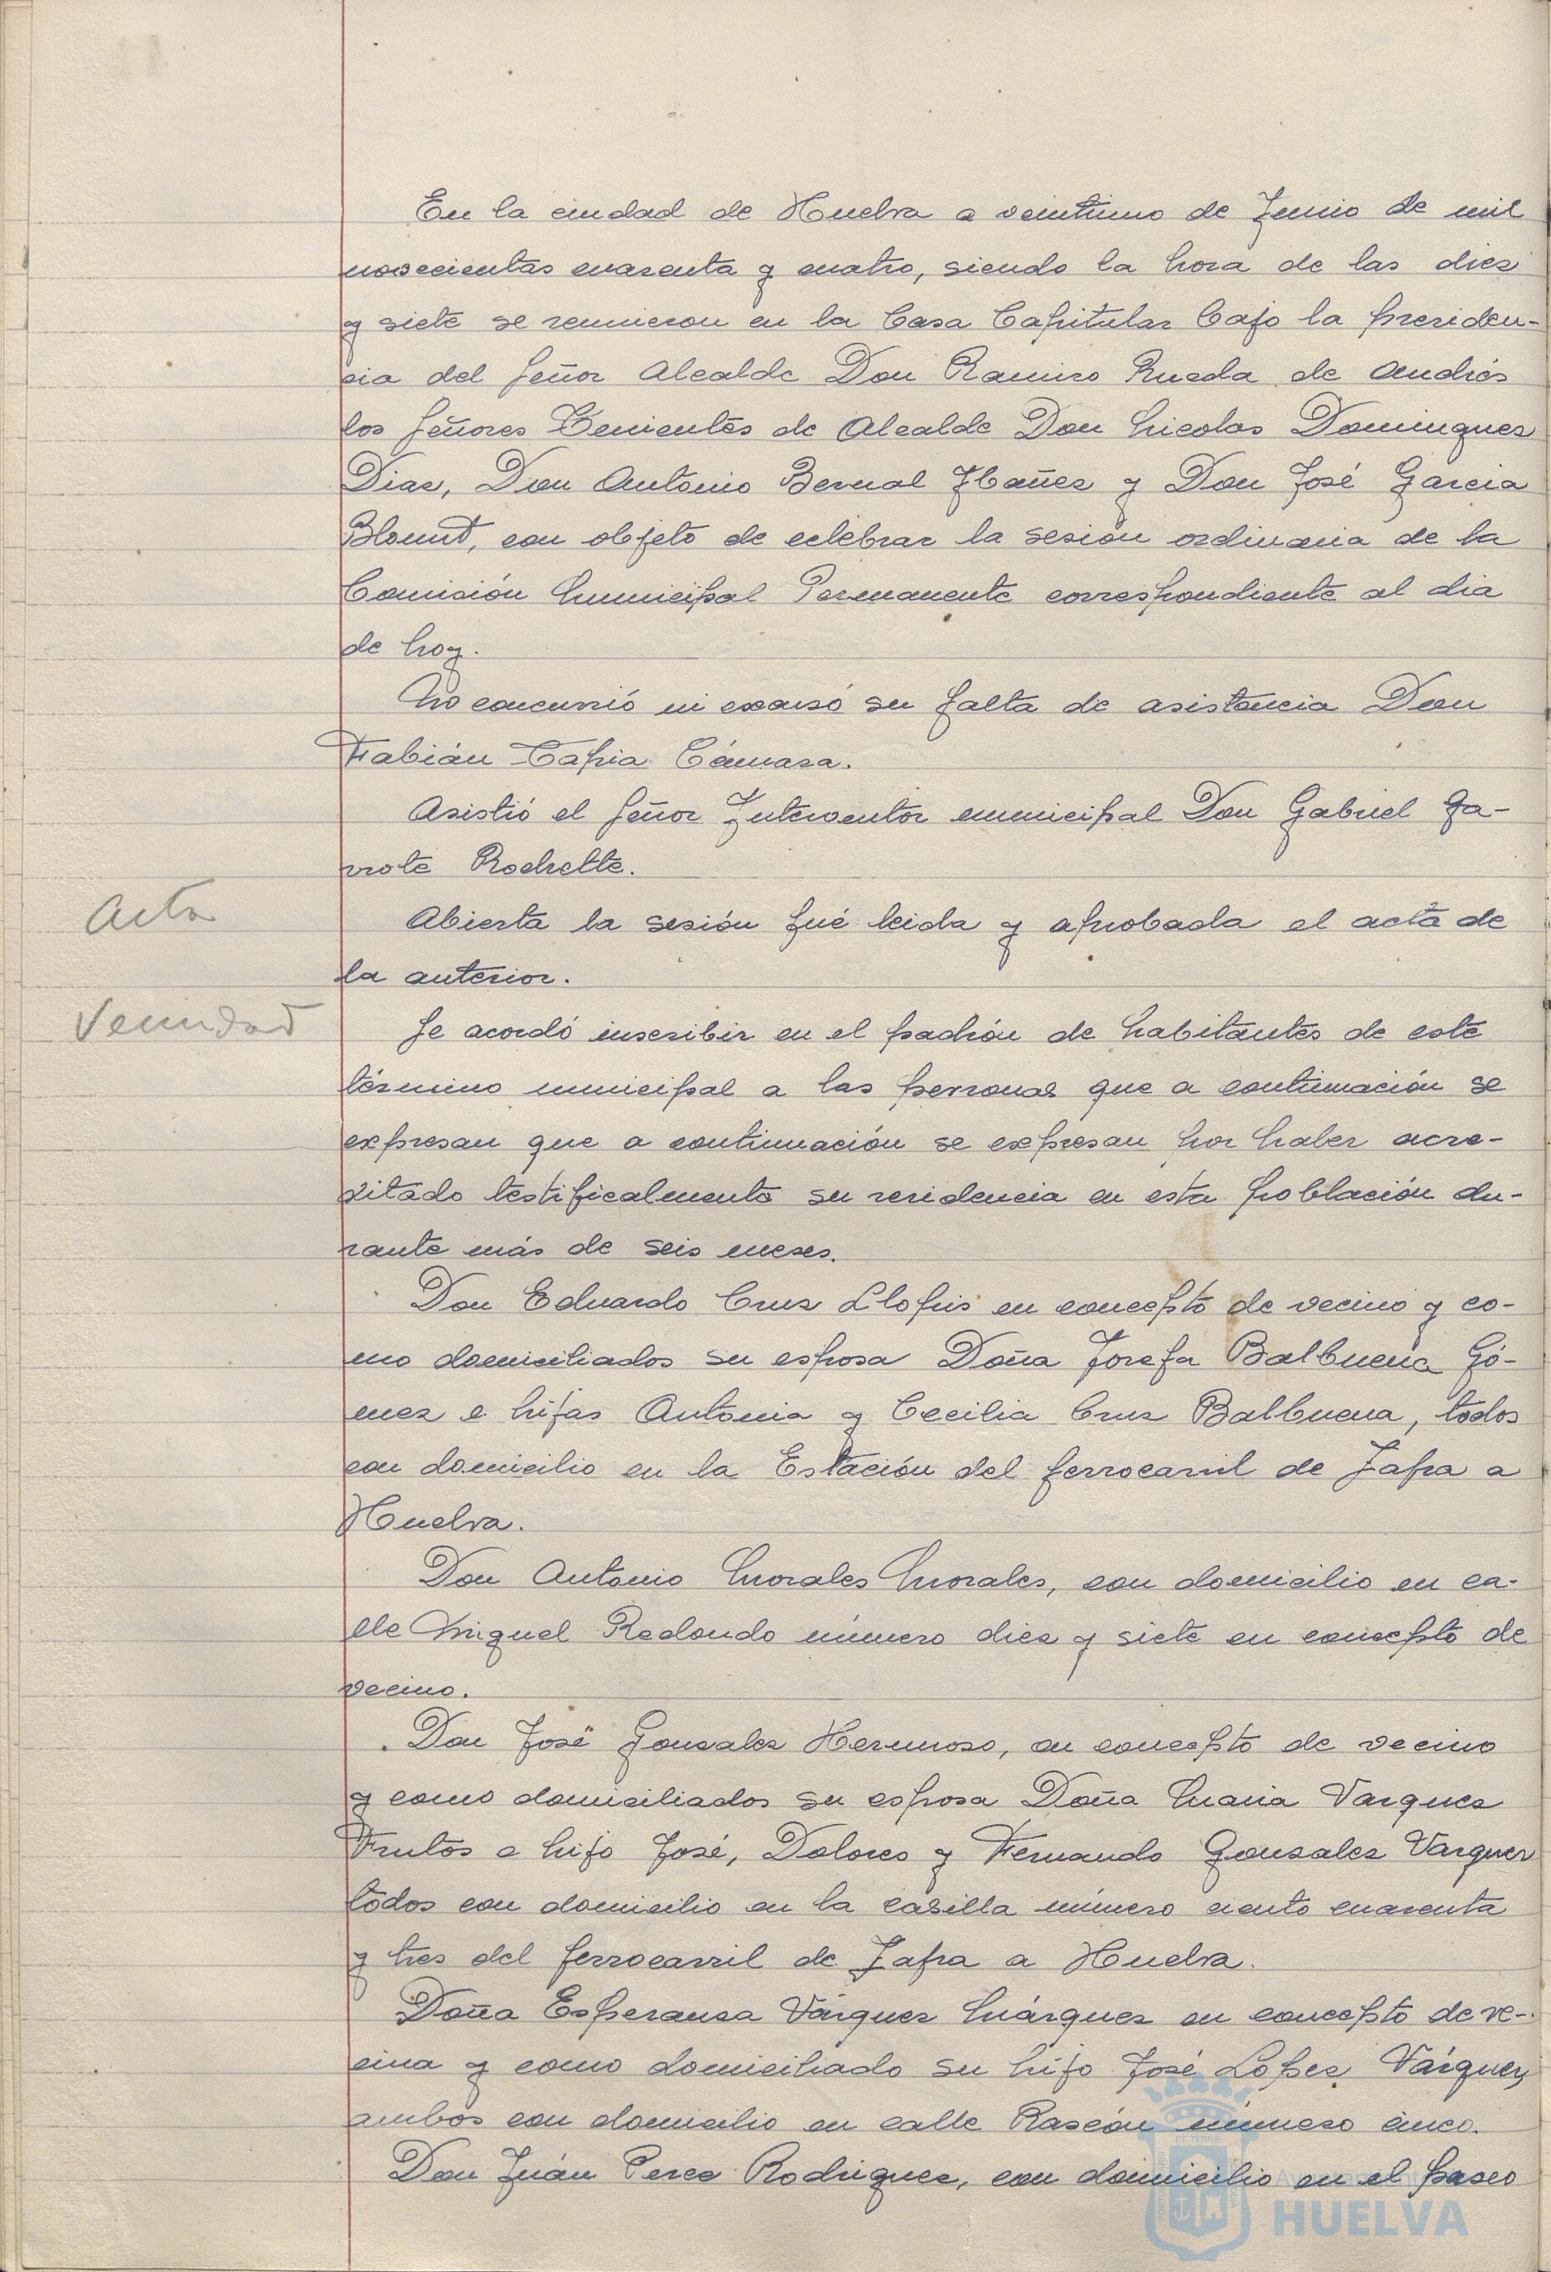 En la ciudad de Huelva a veintiuno de Junio de mil
novecientas cuarenta y cuatro, siendo la hora de las diez
y siete se reunieron en la Casa Capitular bajo la presiden-
cia del Señor Alcalde Don Ramiro Rueda de Andrés
los Señores Tenientes de Alcalde Don Nicolas Dominguez
Diaz, Don Antonio Bernal Ibañez y Don José Garcia
Blount, con objeto de celebrar la sesión ordinaria de la
Comisión Municipal Permanente correspondiente al dia
de hoy.
No concurrió ni excusó su falta de asistencia Don
Fabián Tapia Cámara.
Asistió el Señor Interventor municipal Don Gabriel Ga-
rrote Rochette.
Acta
Abierta la sesión fué leida y aprobada el acta de
la anterior.
Vecindad
Se acordó inscribir en el padrón de habitantes de este
término municipal a las personas que a continuación se
expresan que a continuación se expresan por haber acre-
ditado testificalmente su residencia en esta población du-
rante más de seis meses.
Don Eduardo Cruz Llopis en concepto de vecino y co-
mo domiciliados su esposa Doña Josefa Balbuena Gó-
mez e hijas Antonia y Cecilia Cruz Balbuena, todos
con domicilio en la Estación del ferrocarril de Zafra a
Huelva.
Don Antonio Morales Morales, con domicilio en ca-
lle Miguel Redondo número diez y siete en concepto de
vecino.
Don José Gonzalez Hermoso, en concepto de vecino
y como domiciliados su esposa Doña Maria Vazquez
Frutos e hijo José, Dolores y Fernando Gonzalez Vazquez
todos con domicilio en la casilla número ciento cuarenta
y tres del ferrocarril de Zafra a Huelva.
Doña Esperanza Vázquez Márquez en concepto de ve-
cina y como domiciliado su hijo José Lopez Vázquez,
ambos con domicilio en calle Rascón número cinco.
Don Juán Perez Rodriguez, con domicilio en el paseo
Ayuntamiento
HUELVA